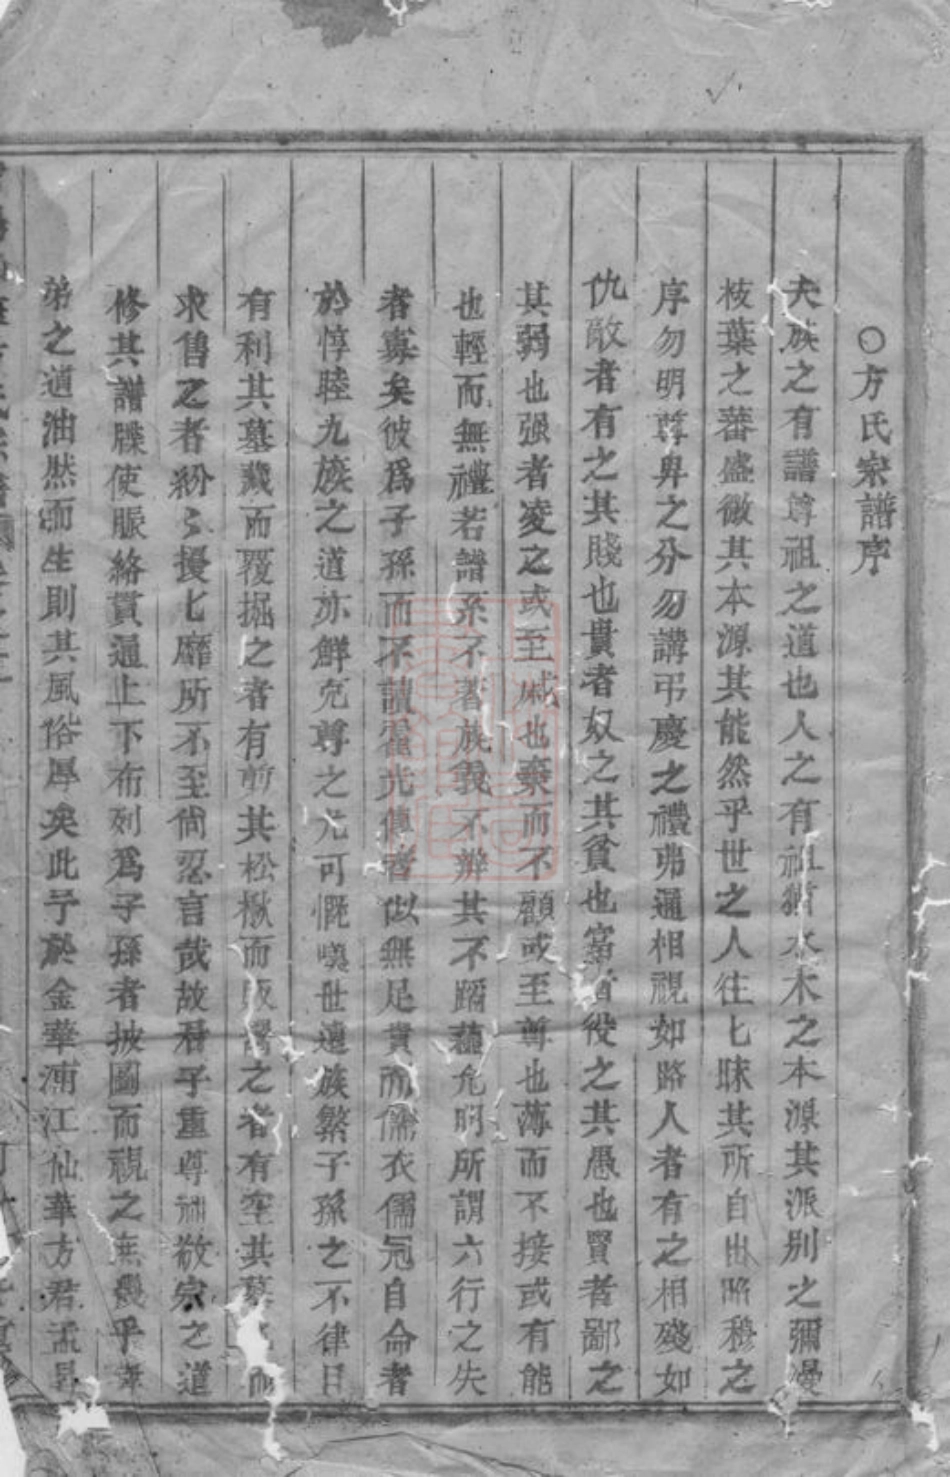 ○方氏宗譜序
夫族之有譜尊祖之道也人之有祖猶水木之本源其派别之彌漫
枝葉之蕃盛微其本源其能然乎世之人往匕昧其所自出昭穆之
序勿明尊卑之分勿講弔慶之禮弗通相視如路人者有之相殘如
仇敵者有之其賤也貴者奴之其貧也富者役之其愚也賢者鄙之
其弱也强者凌之或至戚也棄而不顧或至尊也薄而不接或有能
也輕而無禮若譜系不著族義不辨其不蹈 允明所謂六行之失
者寡矣彼爲子孫而不讀霍光傳者似無足責而儒衣儒冠自命者
於惇睦九族之道亦鮮克尊之尤可慨嘆世遠族繁子孫之不律日
有利其墓藏而覆掘之者有剪其松楸而販鬻之者有空其墓 而
求售之者紛〻擾匕靡所不至尚忍言哉故君子重尊祖敬宗之道
修其譜牒使脈絡貫通上下布列爲子孫者披圖而視之無幾乎孝
弟之道油然而生則其風俗厚矣此予於金華浦江仙華方君孟